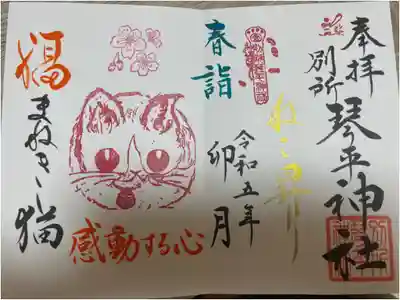 奉拝
別所
琴平神社
ねこ昇り
令和五年
卯月
春詣
感動する心
まねきし猫
福